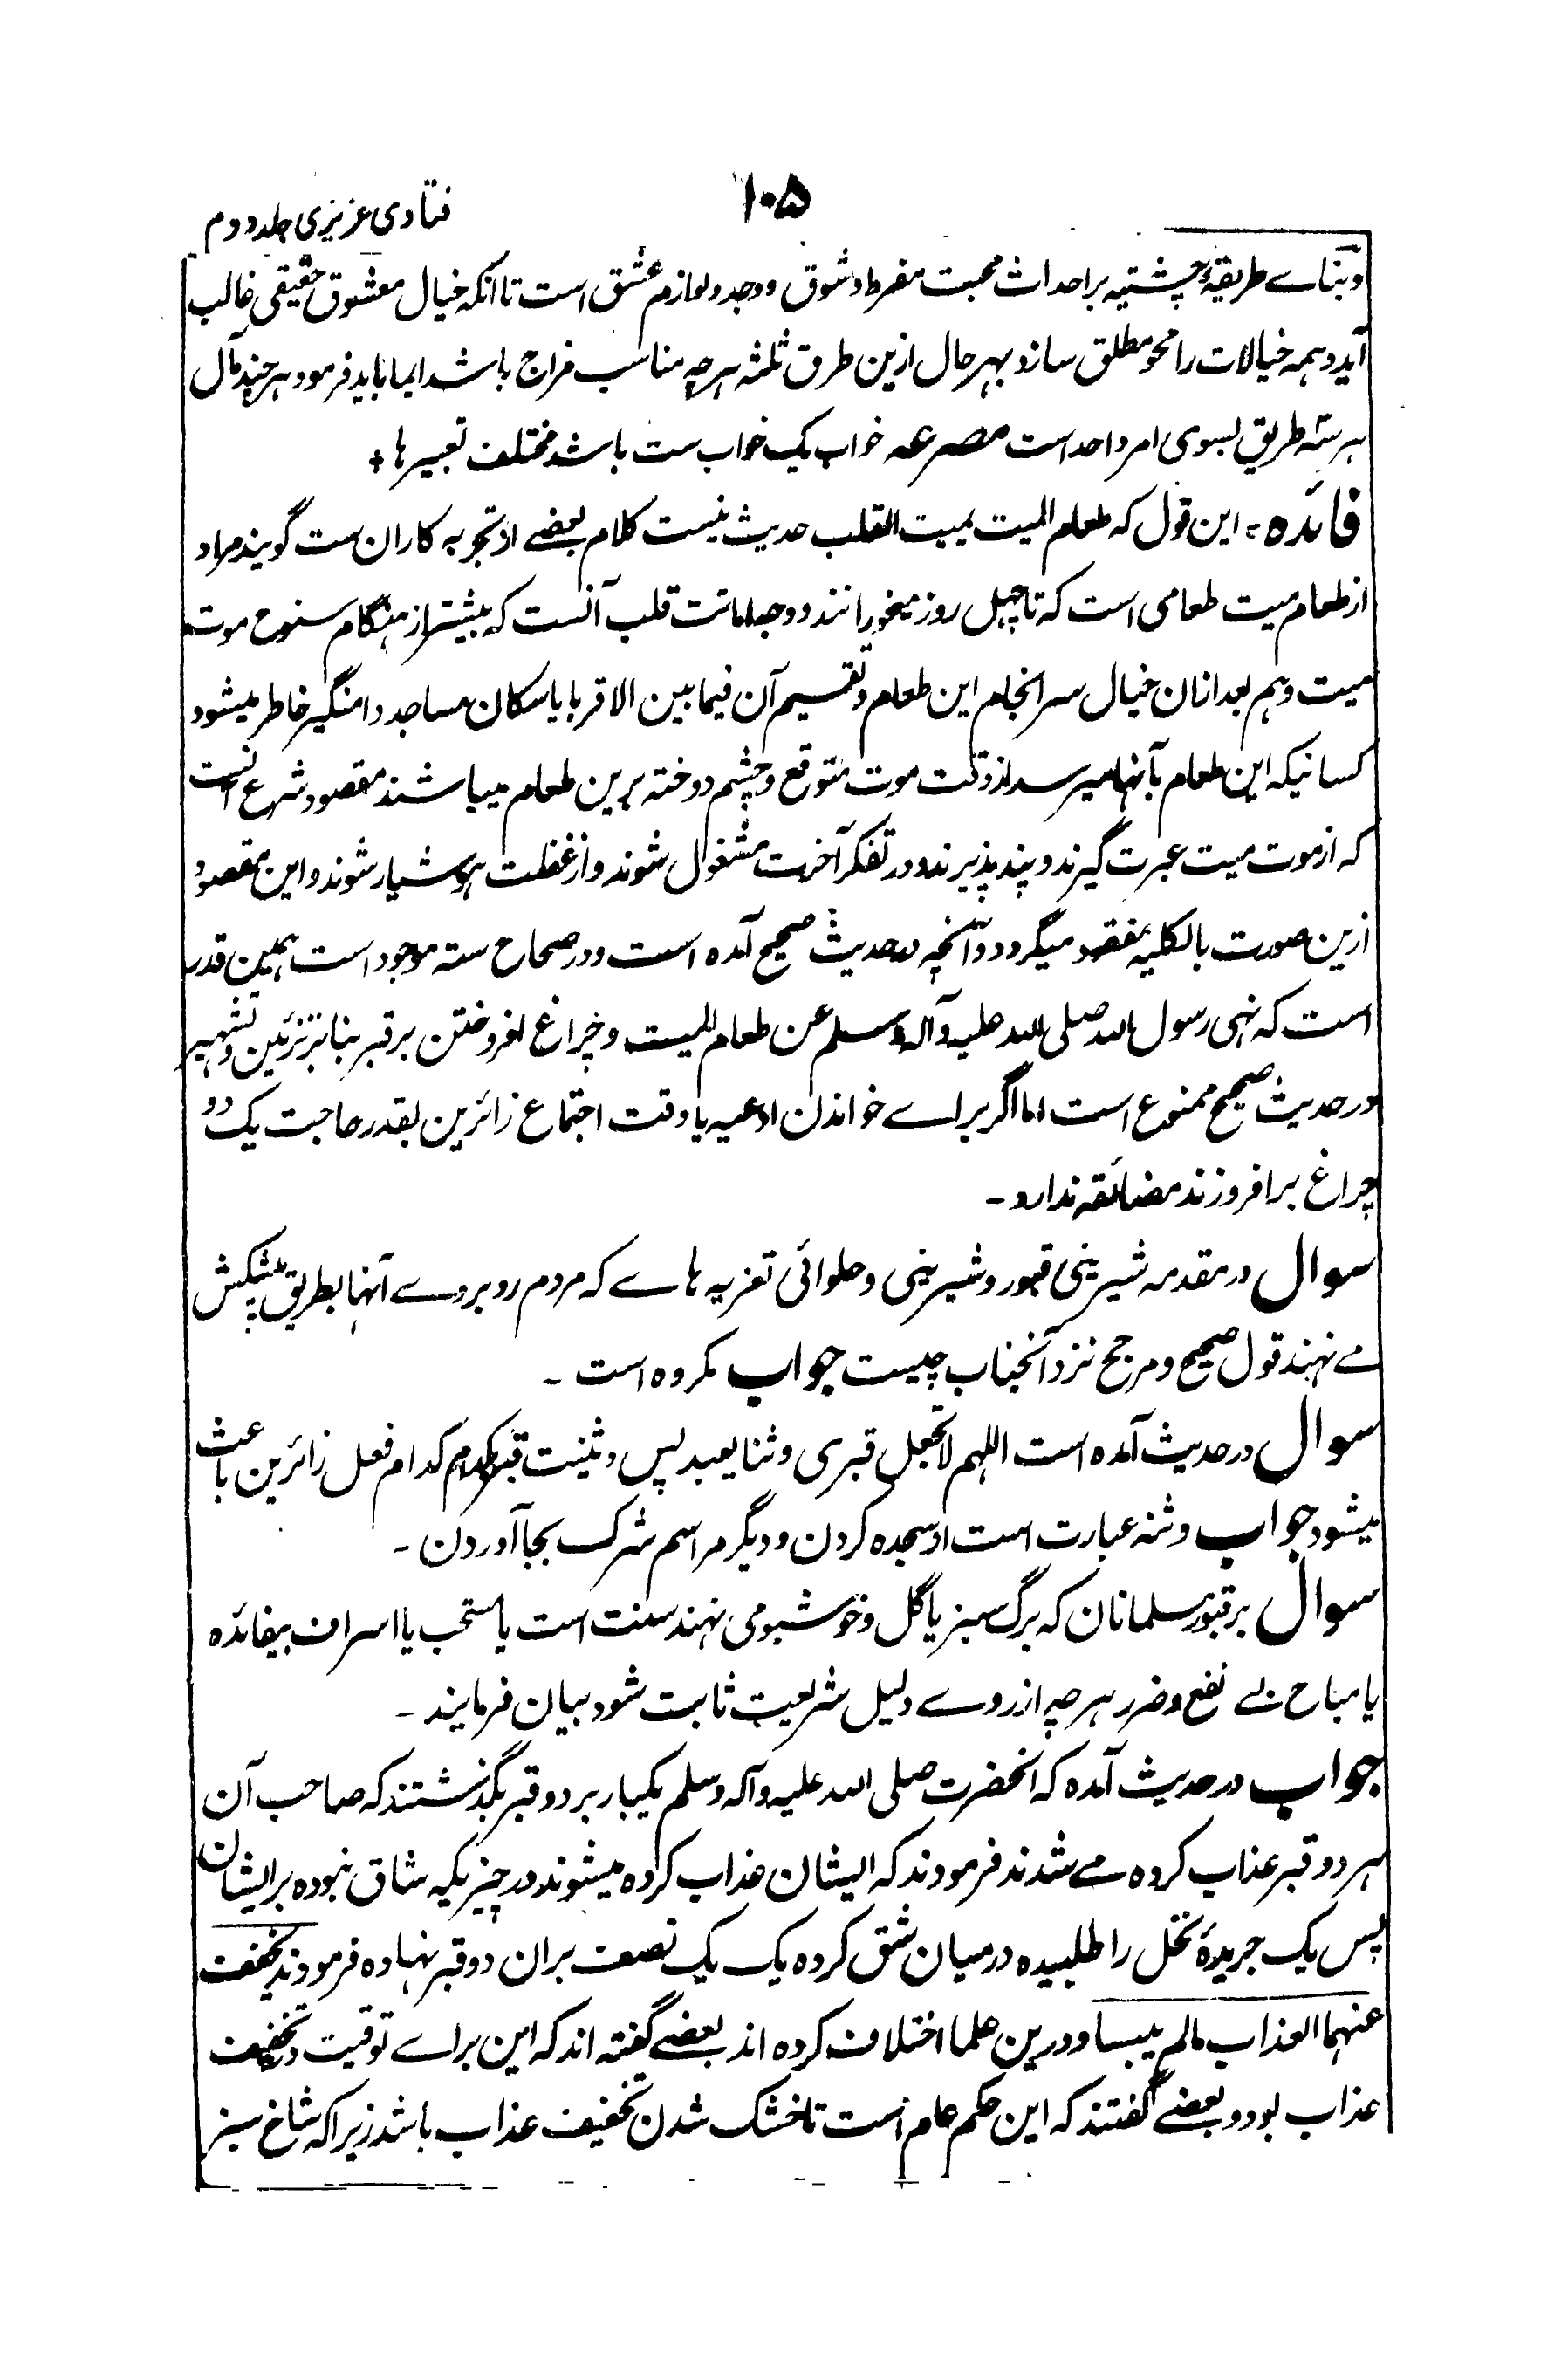 ۱۰۵
فتاوی عزیزی جلد دوم
و بناے طریقۂ چشتیہ بر احداث محبت مفرط و شوق و وجد و لوازم عشق است تا آنکہ خیال معشوق حقیقی غالب
آید و ہمہ خیالات را محو مطلق سازد بہر حال ازین طرق ثلثہ ہرچہ مناسب مزاج باشد ایما باید فرمود ہر چند مآل
ہر سہ طریق بسوی امر واحد است مصرعہ خواب یک خواب ست باشد مختلف تعبیرہا +
فائدہ : این قول کہ طعام المیت یمیت القلب حدیث نیست کلام بعضے از تجربہ کاران ست گویند مراد
از طعام میت طعامی است کہ تا چہل روز میخورانند و وجہ اماتت قلب آنست کہ بیشتر از ہنگام سنوح موت
میت و ہم بعد ازان خیال سرانجام این طعام و تقسیم آن فیما بین الاقربا یا سکان مساجد دامنگیر خاطر میشود
کسانیکہ این طعام بآنہا میرسد از وقت موت متوقع و چشم دوختہ برین طعام میباشند مقصود شرع آنست
کہ از موت میت عبرت گیرند و پند پذیرند و در تفکر آخرت مشغول شوند و از غفلت ہوشیار شوند و این مقصود
ازین صورت بالکلیہ مفقود میگردد و آنچہ در حدیث صحیح آمدہ است و در صحاح ستہ موجود است ہمین قدر
است کہ نہی رسول اللہ صلی اللہ علیہ وآلہ وسلم عن طعام المیت و چراغ افروختن بر قبر بنابر تزئین و تشہیر
در حدیث صحیح ممنوع است اما اگر براے خواندن ادعیہ یا وقت اجتماع زائرین بقدر حاجت یک دو
چراغ برافروزند مضائقہ ندارد ۔
سوال در مقدمہ شیرینی قبور و شیرینی و حلوائی تعزیہ ہاے کہ مردم روبروے آنہا بطریق پیشکش
مے نہند قول صحیح و مرجح نزد آنجناب چیست جواب مکروہ است ۔
سوال در حدیث آمدہ است اللہم لا تجعل قبری وثنا یعبد پس وثنیت قبر بکدام کدام فعل زائرین باعث
میشود جواب وثنہ عبارت است از سجدہ کردن و دیگر مراسم شرک بجا آوردن ۔
سوال بر قبور مسلمانان کہ برگ سبز یا گل و خوشبو می نہند سنت است یا مستحب یا اسراف بیفائدہ
یا مباح بے نفع و ضرر ہرچہ از روے دلیل شریعت ثابت شود بیان فرمایند ۔
جواب در حدیث آمدہ کہ آنحضرت صلی اللہ علیہ وآلہ وسلم یکبار بر دو قبر بگذشتند کہ صاحب آن
ہر دو قبر عذاب کردہ مے شدند فرمودند کہ ایشان عذاب کردہ میشوند در چیزیکہ شاق نبودہ بر ایشان
پس یک جریدۂ نخل را طلبیدہ درمیان شق کردہ یک یک نصف بران دو قبر نہادہ فرمودند یخفف
عنہما العذاب مالم ییبسا و درین علما اختلاف کردہ اند بعضے گفتہ اند کہ این براے توقیت و تخفیف
عذاب بود و بعضے گفتند کہ این حکم عام است تا خشک شدن تخفیف عذاب باشد زیرا کہ شاخ سبز